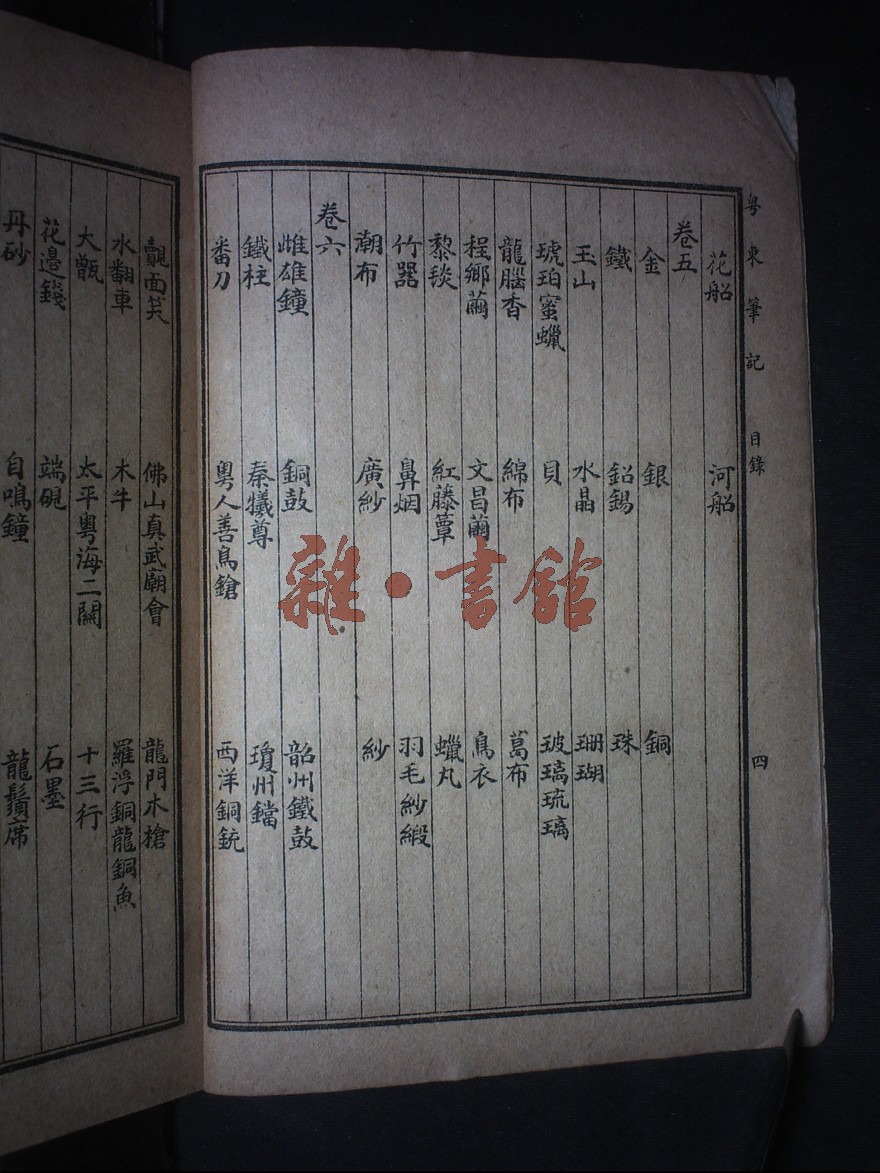 粤東筆記 目錄 四
花船 河船
卷五
金 銀 銅
鐵 鉛錫 珠
玉山 水晶 珊瑚
琥珀蜜蠟 貝 玻璃琉璃
龍腦香 綿布 葛布
程鄉繭 文昌繭 鳥衣
黎毯 紅藤簟 蠟丸
竹器 鼻烟 羽毛紗緞
潮布 廣紗 紗
卷六
雌雄鐘 銅鼓 韶州鐵鼓
鐵柱 秦犧尊 瓊州鐺
番刀 粵人善鳥鎗 西洋銅銃
覿面笑 佛山真武廟會 龍門木槍
水翻車 木牛 羅浮銅龍銅魚
大甑 太平粵海二關 十三行
花邊錢 端硯 石墨
丹砂 自鳴鐘 龍鬚席
雜·書館